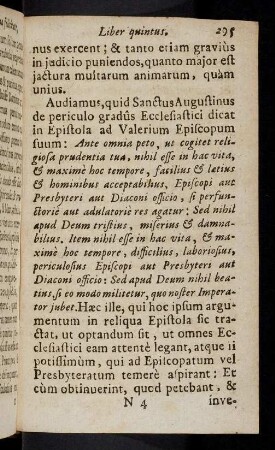 Liber quintus. 295
nus exercent; & tanto etiam gravius
in judicio puniendos, quanto major est
jactura multarum animarum, quàm
unius.
Audiamus, quid Sanctus Augustinus
de periculo gradûs Ecclesiastici dicat
in Epistola ad Valerium Episcopum
suum: Ante omnia peto, ut cogitet reli-
giosa prudentia tua, nihil esse in hac vita,
& maximè hoc tempore, facilius & letius
& hominibus acceptabilius, Episcopi aut
Presbyteri aut Diaconi officio, si perfun-
ctoriè aut adulatoriè res agatur: Sed nihil
apud Deum tristius, miserius & damna-
bilius. Item nihil esse in hac vita, & ma-
ximè hoc tempore, difficilius, laboriosius,
periculosius Episcopi aut Presbyteri aut
Diaconi officio: Sed apud Deum nihil bea-
tius, si eo modo militetur, quo noster Impera-
tor jubet. Hæc ille, qui hoc ipsum argu-
mentum in reliqua Epistola sic tra-
ctat, ut optandum sit, ut omnes Ec-
clesiastici eam attentè legant, atque ii
potissimùm, qui ad Episcopatum vel
Presbyteratum temerè aspirant: Et
cùm obtinuerint, quod petebant, &
N 4 inve-